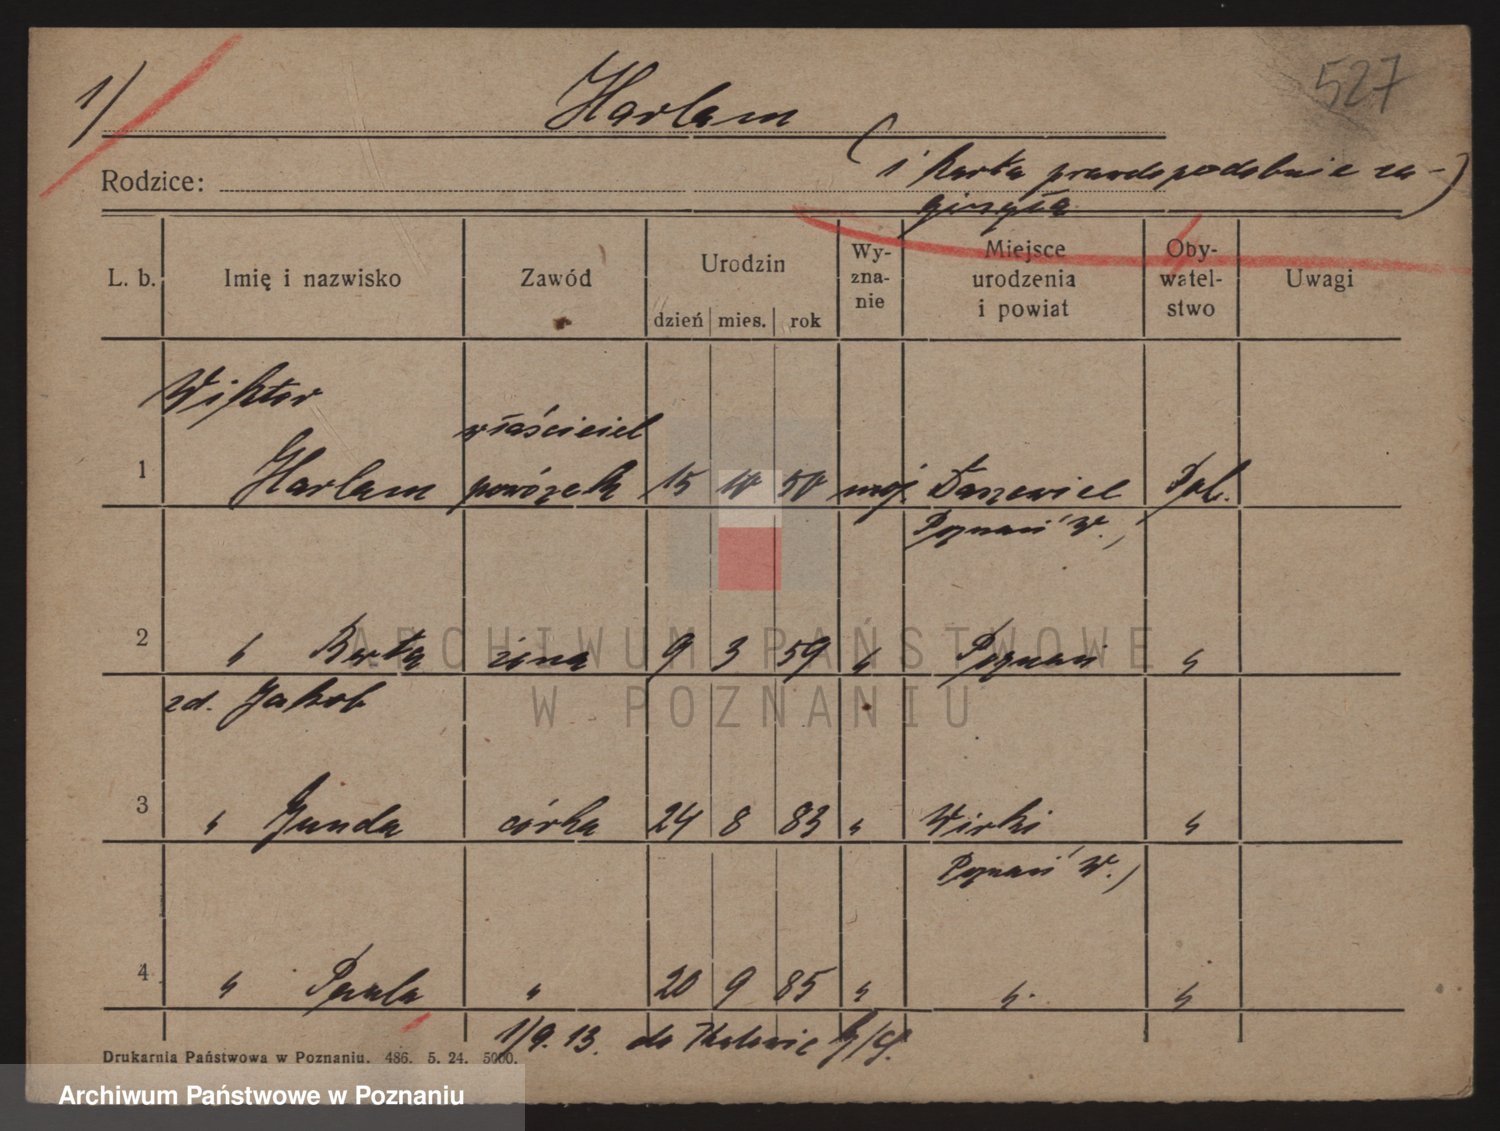 1)
Harlam
527
(1 karta prawdopodobnie za-
ginęła)
Rodzice:
L. b. Imię i nazwisko Zawód Urodzin Wy-zna-nie Miejsce urodzenia i powiat Oby-watel-stwo Uwagi
dzień mies. rok
Wiktor
właściciel
1 Harlam powózek 15 10 50 mojż. Daszewice Pol.
Poznań W.
2 " Berta żona 9 3 59 " Poznań "
zd. Jakob
3 " Gunda córka 24 8 83 " Wirki "
Poznań W.
4 " Paula " 20 9 85 " " "
1/9. 13. do
Drukarnia Państwowa w Poznaniu. 486. 5. 24. 5000.
ARCHIWUM PAŃSTWOWE
W POZNANIU
Archiwum Państwowe w Poznaniu